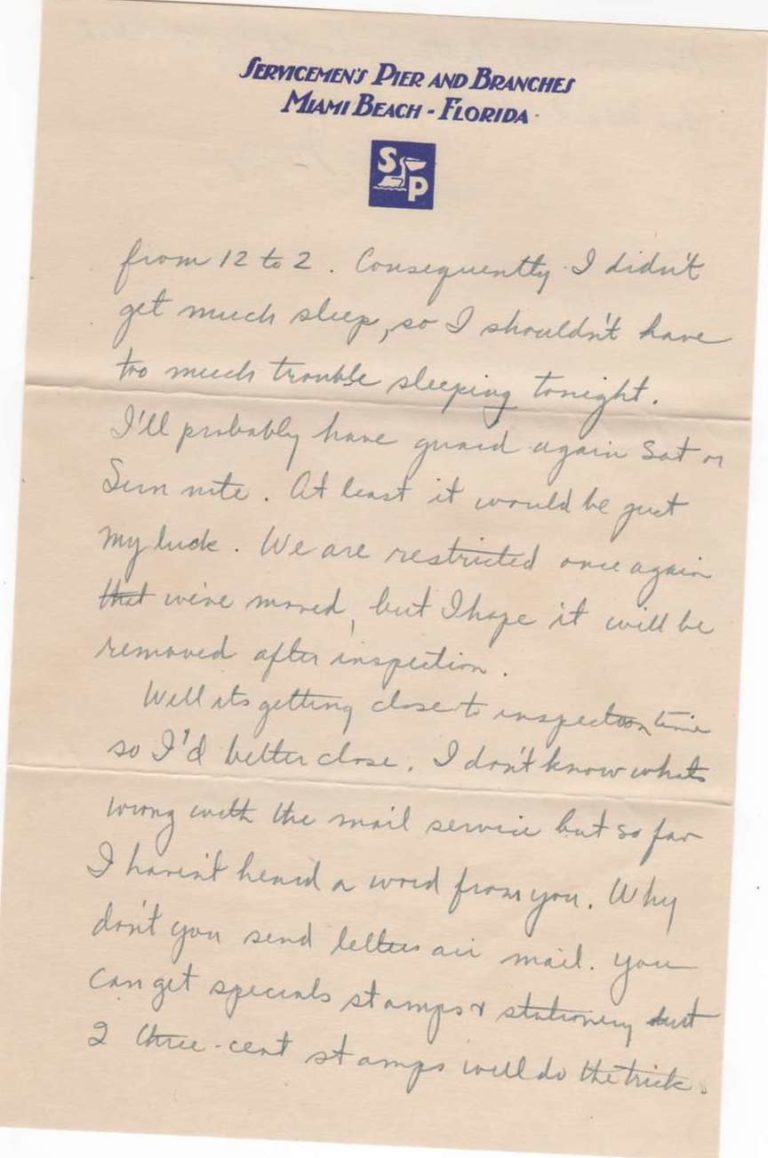 SERVICEMEN'S PIER AND BRANCHES
MIAMI BEACH - FLORIDA
S P
from 12 to 2. Consequently I didn't
get much sleep, so I shouldn't have
too much trouble sleeping tonight.
I'll probably have guard again Sat or
Sun nite. At least it would be just
my luck. We are restricted once again
that we're moved, but I hope it will be
removed after inspection.
Well its getting close to inspection time
so I'd better close. I don't know whats
wrong with the mail service but so far
I haven't heard a word from you. Why
don't you send letters air mail. You
can get specials stamps & stationery but
2 three-cent stamps will do the trick.